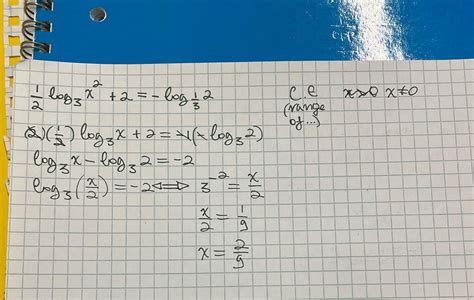 1/2 log₃ x² + 2 = - log_{1/3} 2
C.E (range of...) x>0 x≠0
(2)(1/2) log₃ x + 2 = -1(- log₃ 2)
log₃ x - log₃ 2 = -2
log₃ (x/2) = -2 ⟺ 3⁻² = x/2
x/2 = 1/9
x = 2/9